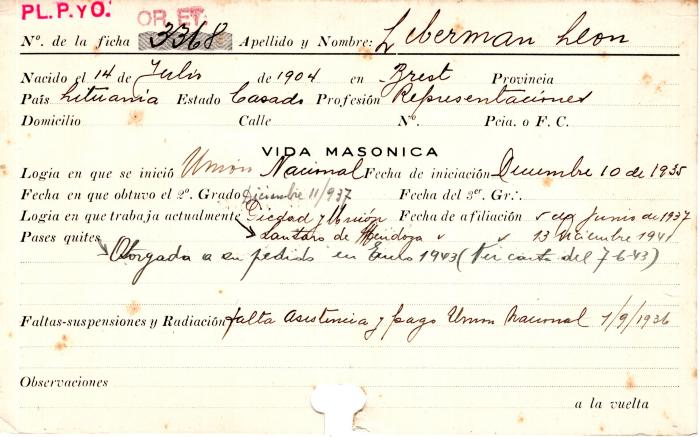 PL.P.yO.
OR. ET.
Nº. de la ficha 3368 Apellido y Nombre: Liberman Leon
Nacido el 14 de Julio de 1904 en Brest Provincia
País Lituania Estado Casado Profesión Representaciones
Domicilio Calle Nº. Pcia. o F. C.
VIDA MASONICA
Logia en que se inició Unión Nacional Fecha de iniciación Diciembre 10 de 1935
Fecha en que obtuvo el 2º. Grado Diciembre 11/937 Fecha del 3er. Gr∴.
Logia en que trabaja actualmente Piedad y Unión Fecha de afiliación Junio de 1937
Pases quites Lautaro de Mendoza " " 13 diciembre 1941
Otorgada a su pedido en Enero 1943 (Ver carta del 7-6-43)
Faltas-suspensiones y Radiación falta Asistencia y pago Union Nacional 1/9/1936
Observaciones
a la vuelta